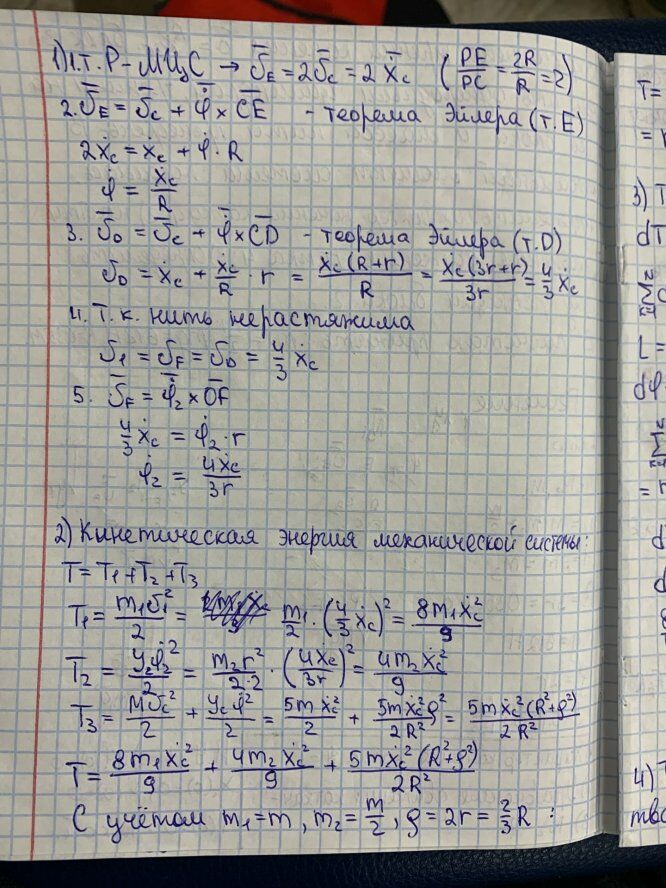 1) 1. т. P - МЦС → V̄_E = 2V̄_C = 2ẋ̄_C (PE/PC = 2R/R = 2)
2. V̄_E = V̄_C + φ̇̄ × C̄Ē - теорема Эйлера (т. E)
2ẋ_C = ẋ_C + φ̇ · R
φ̇ = ẋ_C/R
3. V̄_D = V̄_C + φ̇̄ × C̄D̄ - теорема Эйлера (т. D)
V_D = ẋ_C + ẋ_C/R · r = ẋ_C(R+r)/R = ẋ_C(3r+r)/3r = 4/3 ẋ_C
4. Т. к. нить нерастяжима
V_1 = V_F = V_D = 4/3 ẋ_C
5. V̄_F = φ̇̄_2 × ŌF̄
4/3 ẋ_C = φ̇_2 · r
φ̇_2 = 4ẋ_C/3r
2) Кинетическая энергия механической системы:
T = T_1 + T_2 + T_3
T_1 = m_1V_1²/2 = m_1/2 · (4/3 ẋ_C)² = 8m_1ẋ_C²/9
T_2 = J_2φ̇_2²/2 = m_2r²/2·2 · (4ẋ_C/3r)² = 4m_2ẋ_C²/9
T_3 = MV_C²/2 + J_Cφ̇²/2 = 5mẋ_C²/2 + 5mẋ_C²ρ²/2R² = 5mẋ_C²(R²+ρ²)/2R²
T = 8m_1ẋ_C²/9 + 4m_2ẋ_C²/9 + 5mẋ_C²(R²+ρ²)/2R²
С учётом m_1 = m, m_2 = m/2, ρ = 2r = 2/3 R :
T =
3) T
dT
L =
dφ
4) T
тво